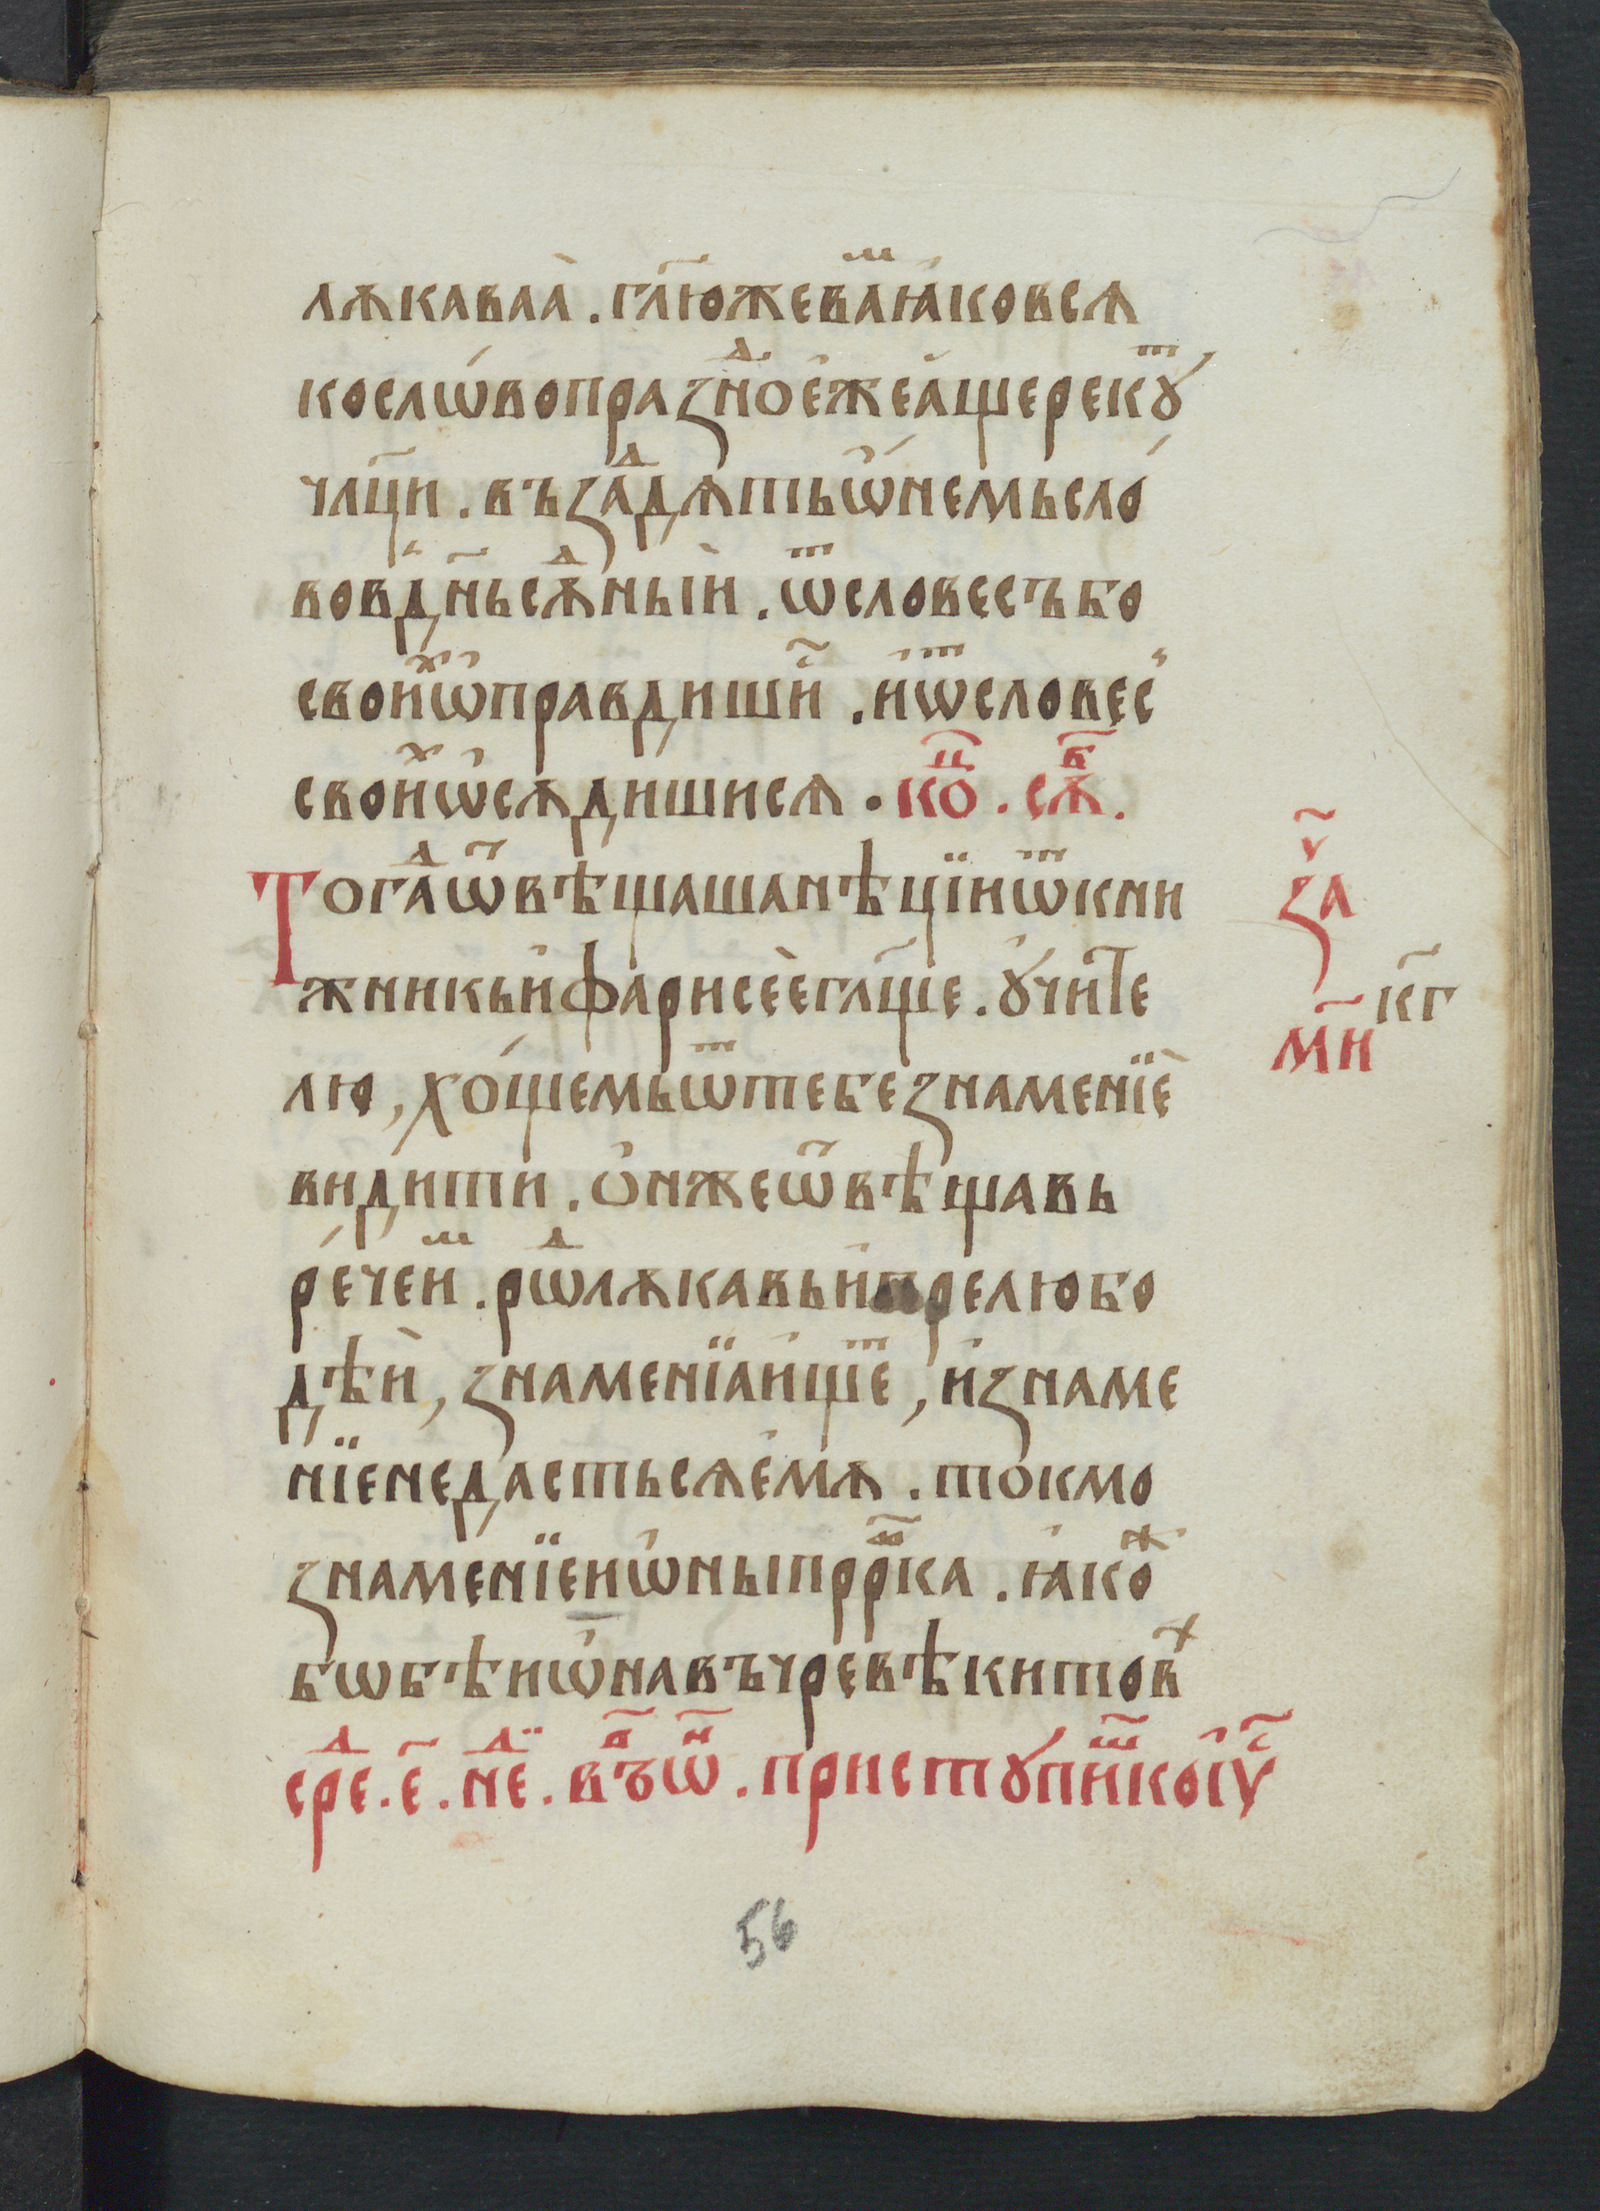 лѫкаваа̀ . гл҃южеваⷨꙗ҆ковсѧ
кослѡ́вопразⷣноє҆жеа҆щерекꙋⷮ
чл҃ци . въꙁдаⷣѧтьѡ҆немьсло́
вовдн҃ьсѫⷣный . ѿсловесъбо
своиⷯѡ҆правдишиⷭ҇ . и҆ѿсловес̾
своиⷯѡ҆сѧдишисѧ . коⷰ҇ . сѫⷠ҇ .
Тогаⷣѿвѣщашанѣцїиѿкни
жникьи҆фарисее҆гл҃ще . ᲂу҆чите
лю , хо́щемьѿтебеꙁнаменїѐ
видити . о҆нжеѿвѣщавь
ре́чеиⷨ . рѡⷣлѫкавьи҆прелюбо
дѣи̇ , ꙁнаменїаи҆щеⷮ , и҆ꙁнаме
нїенедастьсѧе҆мѫ . токмо
ꙁнаменїеиѡ҆ныпррⷪ҇ка . ꙗ҆коⷤ
бѡбѣиѡ҆навъчревѣкитовⷯ
среⷣ . е҃ . неⷣ . въⷪ҇ѡⷩ҇ . пристꙋпиⷲ҇коі҆ѵⷭ҇
ꙁаⷱ҇
мн҃
кг҃
56